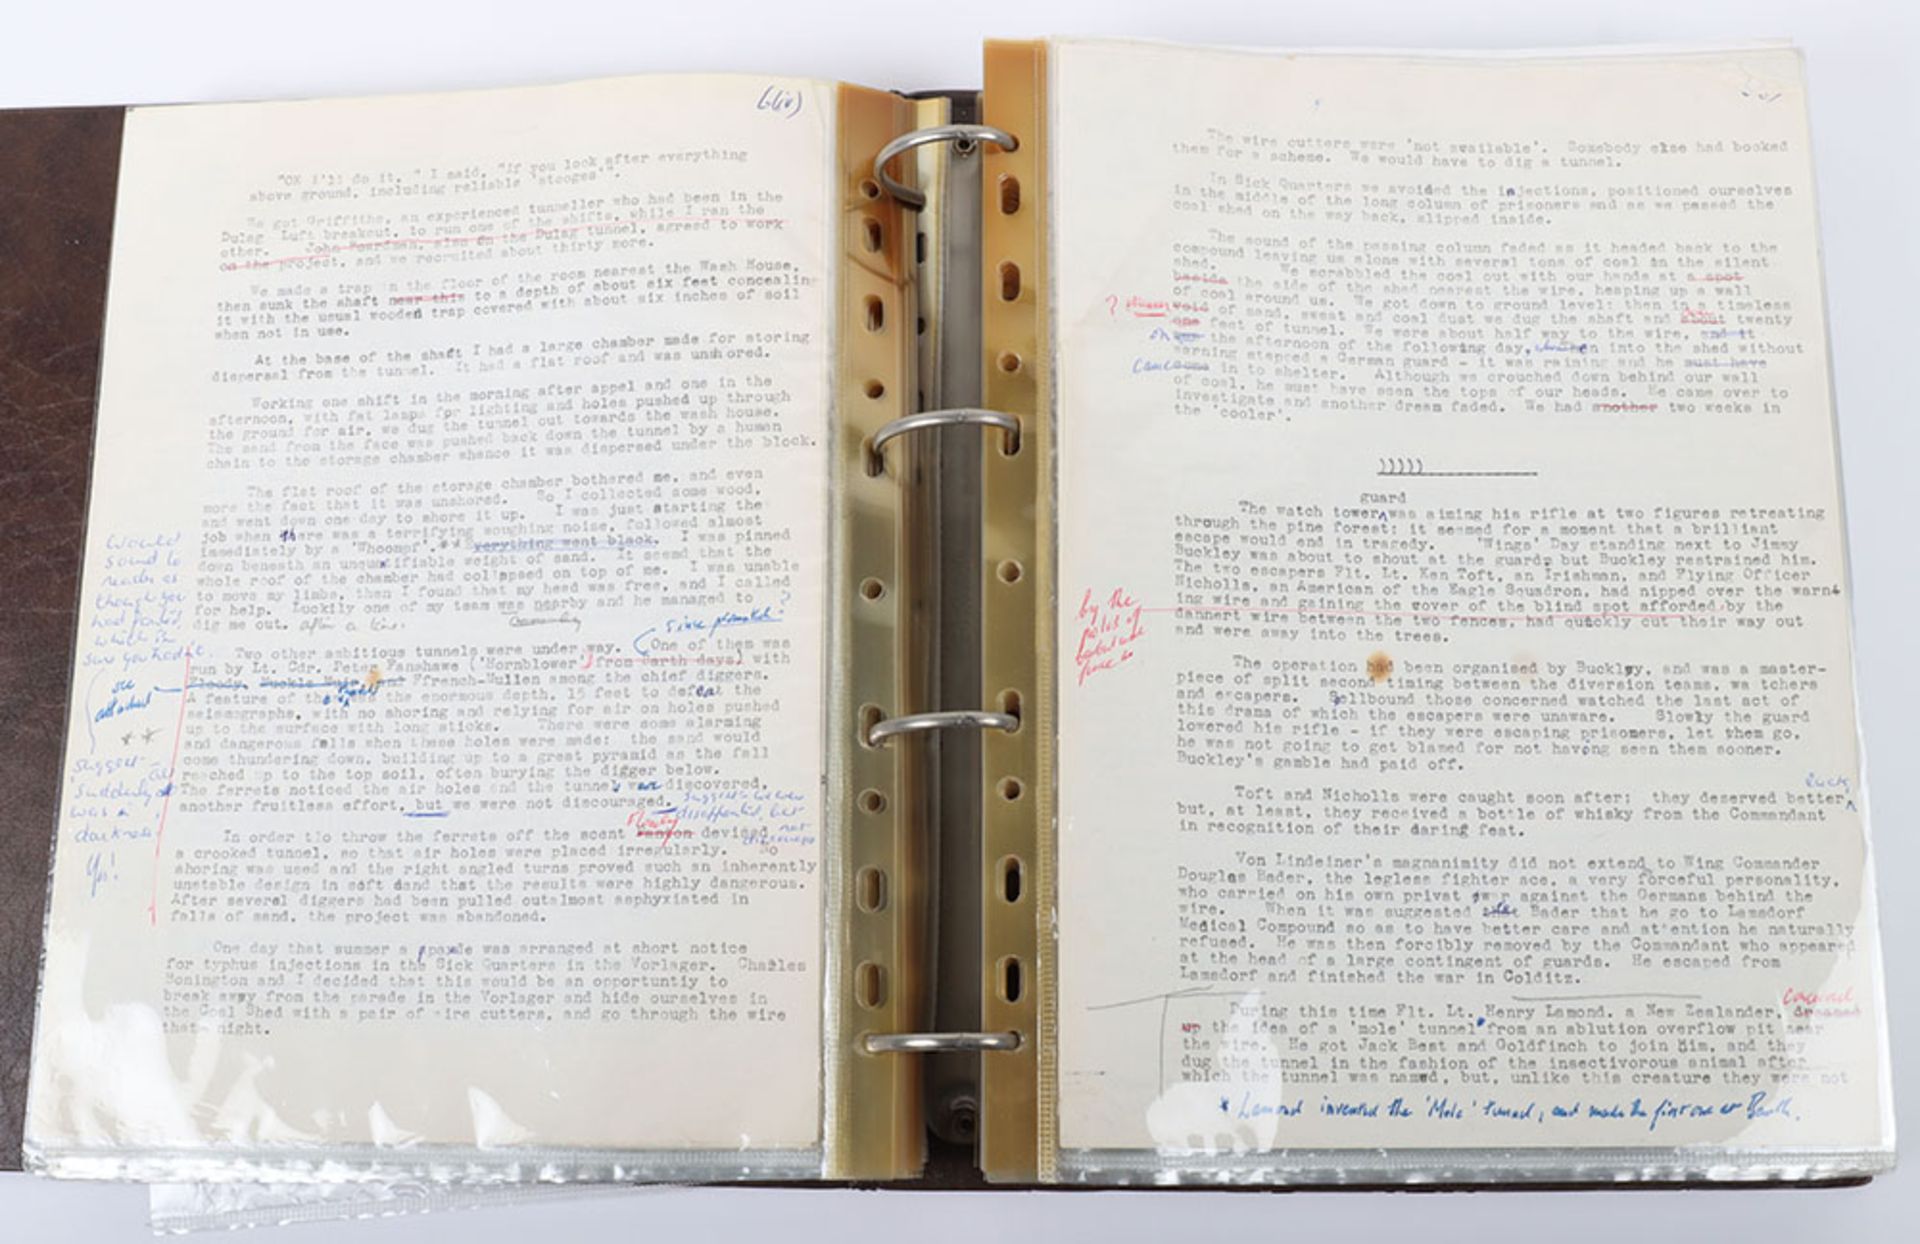 "OK I'll do it, " I said, "if you look after everything
above ground, including reliable 'stooges'".
He got Griffiths, an experienced tunneller who had been in the
Dulag Luft breakout, to run one of the shifts, while I ran the
other. John Boardman, also on the Dulag tunnel, agreed to work
on the project, and we recruited about thirty more.
We made a trap in the floor of the room nearest the Wash House,
then sunk the shaft near this to a depth of about six feet concealin
it with the usual wooden trap covered with about six inches of soil
when not in use.
At the base of the shaft I had a large chamber made for storing
dispersal from the tunnel. It had a flat roof and was unshored.
Working one shift in the morning after appel and one in the
afternoon, with fat lamps for lighting and holes pushed up through
the ground for air, we dug the tunnel out towards the wash house.
The sand from the face was pushed back down the tunnel by a human
chain to the storage chamber whence it was dispersed under the block.
The flat roof of the storage chamber bothered me, and even
more the fact that it was unshored. So I collected some wood,
and went down one day to shore it up. I was just starting the
job when there was a terrifying soughing noise, followed almost
immediately by a 'Whoompf'. ** everything went black. I was pinned
down beneath an unquantifiable weight of sand. It seemd that the
whole roof of the chamber had collapsed on top of me. I was unable
to move my limbs, then I found that my head was free, and I called
for help. Luckily one of my team was nearby and he managed to ?
dig me out. after a time.
since promoted
Would
sound to
reader as
though you
had fainted,
which I'm
sure you hadn't.
Two other ambitious tunnels were under way. One of them was
run by Lt. Cdr. Peter Fanshawe ('Hornblower') from Barth days) with
Floody, Buckle Muir, and Ffrench-Mullen among the chief diggers.
A feature of the was the enormous depth, 15 feet to defeat the
seismographs, with no shoring and relying for air on holes pushed
up to the surface with long sticks. There were some alarming
and dangerous falls when these holes were made: the sand would
come thundering down, building up to a great pyramid as the fall
reached up to the top soil, often burying the digger below.
The ferrets noticed the air holes and the tunnel was discovered,
another fruitless effort, but we were not discouraged.
see
attached
**
suggest-
'Suddenly all
was in
darkness'
Yes!
In order tio throw the ferrets off the scent Canton devised
Floody
a crooked tunnel, so that air holes were placed irregularly. No
shoring was used and the right angled turns proved such an inherently
unstable design in soft dand that the results were highly dangerous.
After several diggers had been pulled outalmost asphyxiated in
falls of sand, the project was abandoned.
One day that summer a parade was arranged at short notice
for typhus injections in the Sick Quarters in the Vorlager. Charles
Bonington and I decided that this would be an opportuntiy to
break away from the parade in the Vorlager and hide ourselves in
the Coal Shed with a pair of wire cutters, and go through the wire
that night.
The wire cutters were 'not available'. Somebody else had booked
them for a scheme. We would have to dig a tunnel.
In Sick Quarters we avoided the injections, positioned ourselves
in the middle of the long column of prisoners and as we passed the
coal shed on the way back, slipped inside.
The sound of the passing column faded as it headed back to the
compound leaving us alone with several tons of coal in the silent
shed. We scrabbled the coal out with our hands at a spot
beside the side of the shed nearest the wire, heaping up a wall
of coal around us. We got down to ground level: then in a timeless
void of sand, sweat and coal dust we dug the shaft and about twenty
one feet of tunnel. We were about half way to the wire, and it
was the afternoon of the following day, when into the shed without
warning stepped a German guard - it was raining and he must have
came in to shelter. Although we crouched down behind our wall
of coal, he must have seen the tops of our heads. He came over to
investigate and another dream faded. We had another two weeks in
the 'cooler'.
)))))
guard
The watch tower was aiming his rifle at two figures retreating
through the pine forest; it seemed for a moment that a brilliant
escape would end in tragedy. 'Wings' Day standing next to Jimmy
Buckley was about to shout at the guard, but Buckley restrained him.
The two escapers Flt. Lt. Ken Toft, an Irishman, and Flying Officer
Nicholls, an American of the Eagle Squadron, had nipped over the warn
ing wire and gaining the cover of the blind spot afforded by the
dannert wire between the two fences, had quickly cut their way out
and were away into the trees.
by the
The operation had been organised by Buckley, and was a master-
piece of split second timing between the diversion teams, wa tchers
and escapers. Spellbound those concerned watched the last act of
this drama of which the escapers were unaware. Slowly the guard
lowered his rifle - if they were escaping prisoners, let them go,
he was not going to get blamed for not having seen them sooner.
Buckley's gamble had paid off.
luck,
Toft and Nicholls were caught soon after; they deserved better
but, at least, they received a bottle of whisky from the Commandant
in recognition of their daring feat.
Von Lindeiner's magnanimity did not extend to Wing Commander
Douglas Bader, the legless fighter ace, a very forceful personality,
who carried on his own privat war against the Germans behind the
wire. When it was suggested Bader that he go to Lamsdorf
Medical Compound so as to have better care and attention he naturally
refused. He was then forcibly removed by the Commandant who appeared
at the head of a large contingent of guards. He escaped from
Lamsdorf and finished the war in Colditz.
During this time Flt. Lt. Henry Lamond, a New Zealander, dreamed
up the idea of a 'mole' tunnel from an ablution overflow pit near
the wire. He got Jack Best and Goldfinch to join him, and they
dug the tunnel in the fashion of the insectivorous animal after
which the tunnel was named, but, unlike this creature they were not
* Lamond invented the 'Mole' tunnel, and made the first one at Barth.